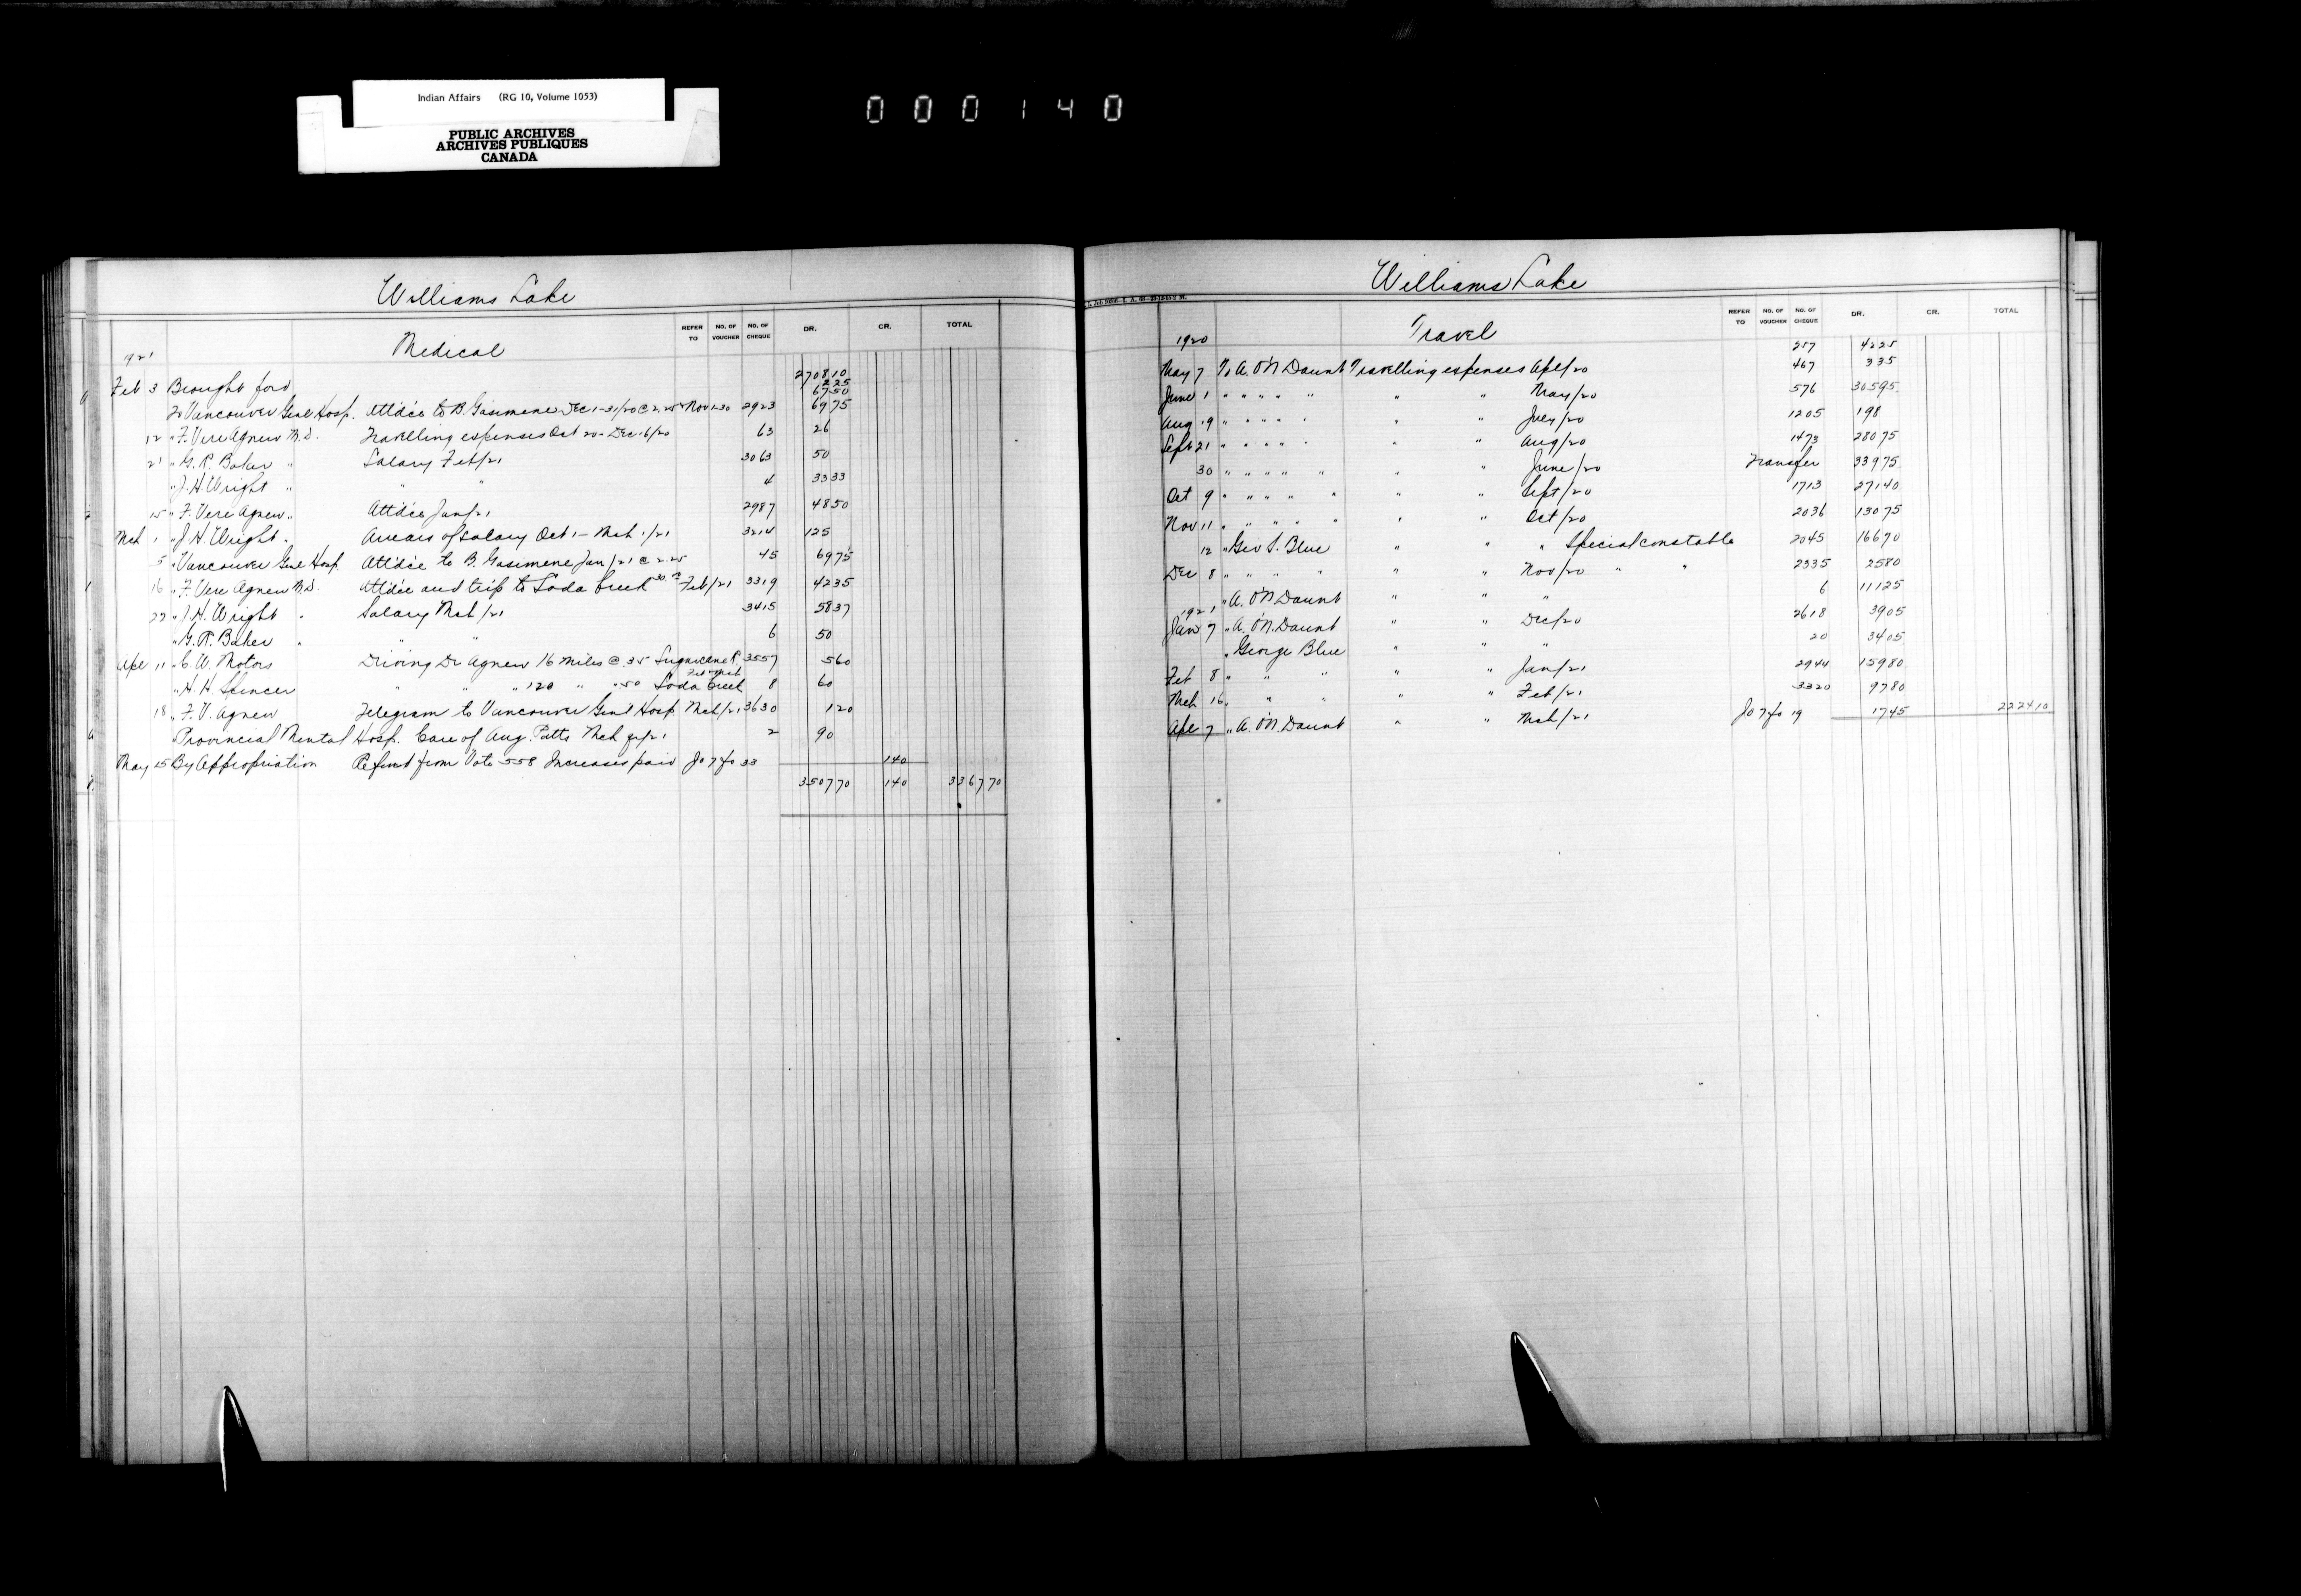 Indian Affairs (RG 10, Volume 1053)
PUBLIC ARCHIVES
ARCHIVES PUBLIQUES
CANADA
000140
Williams Lake
Medical
REFER TO NO. OF VOUCHER NO. OF CHEQUE DR. CR. TOTAL
1921
Feb 3 Brought ford 270810
225
6750
To Vancouver Genl Hosp. Attdce to B. Gasimene Dec 1-31/20 @ 2.25 Nov 1-30 2923 6975
12 " F. Vere Agnew M.D. Travelling expenses Oct 20 - Dec 16/20 63 26
21 " G. R. Baker " Salary Feb/21 3063 50
" J. H. Wright " " " 4 3333
15 " F. Vere Agnew " Attdce Jan/21 2987 4850
Mch 1 " J. H. Wright " Arrears of salary Oct 1 - Mch 1/21 3214 125
5 " Vancouver Genl Hosp. Attdce to B. Gasimene Jan/21 @ 2.25 45 6975
16 " F. Vere Agnew M.D. Attdce and trip to Soda Creek Feb/21 3319 4235
22 " J. H. Wright " Salary Mch/21 3415 5837
" G. R. Baker " " " 6 50
Apl 11 " C. W. Motors Driving Dr Agnew 16 miles @ .35 3557 560
" H. H. Spencer " " " 120 " " .50 Soda Creek 8 60
18 " F. V. Agnew Telegram to Vancouver Genl Hosp Mch/21 3630 120
" Provincial Mental Hosp. Care of Aug. Patts Mch qr/21 2 90
May 25 By Appropriation Refund from Vote 558 Increases paid Jo 7 fo 33 140
350770 140 336770
Williams Lake
Travel
REFER TO NO. OF VOUCHER NO. OF CHEQUE DR. CR. TOTAL
1920
May 7 To A. O'N Daunt Travelling expenses Apl/20 257 4225
June 1 " " " " " " " May/20 467 335
Aug 19 " " " " " " " July/20 576 30595
Sept 21 " " " " " " " Aug/20 1205 198
30 " " " " " " " June/20 1473 28075
Oct 9 " " " " " " " Sept/20 Transfer 33975
Nov 11 " " " " " " " Oct/20 1713 27140
12 " Geo S. Blue " " " Special constable 2036 13075
Dec 8 " " " " " " Nov/20 " " 2045 16670
" A. O'N Daunt " " " 2335 2580
1921 6 11125
Jan 7 " A. O'N. Daunt " " Dec/20 2618 3905
" George Blue " " " 20 3405
Feb 8 " " " " " Jan/21 2944 15980
Mch 16 " " " " " Feb/21 3320 9780
Apl 7 " A. O'N. Daunt " " Mch/21 Jo 7 fo 19 1745 222410